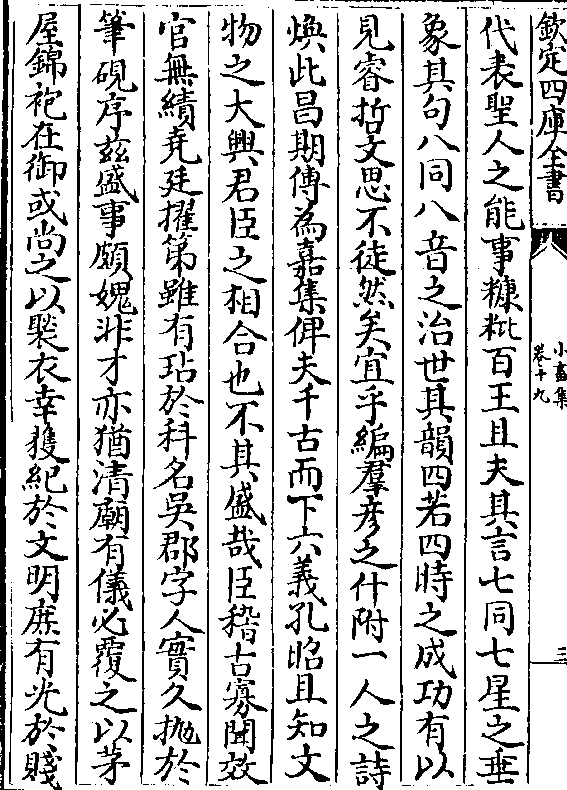 欽定四庫全書
小畜集
卷十九
三
代表聖人之能事糠粃百王且夫其言七同七星之垂
象其句八同八音之治世其韻四若四時之成功有以
見睿哲文思不徒然矣宜乎編羣彥之什附一人之詩
煥此昌期傳為嘉集俾夫千古而下六義孔昭且知文
物之大興君臣之相合也不其盛哉臣稽古寡聞效
官無績堯廷擢第雖有玷於科名吳郡字人實久抛於
筆硯序兹盛事願媿非才亦猶清廟有儀必覆之以茅
屋錦袍在御或尚之以褧衣幸獲紀於文明庶有光於賤